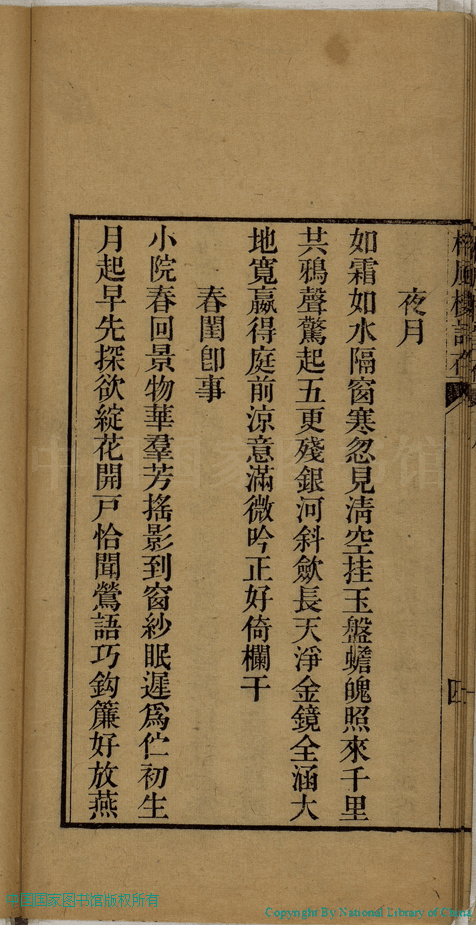 夜月
如霜如水隔窗寒忽見淸空挂玉盤蟾魄照來千里
共鴉聲驚起五更殘銀河斜歛長天淨金鏡全涵大
地寬嬴得庭前涼意滿微吟正好倚欄干
春閨卽事
小院春回景物華羣芳搖影到窗紗眠遲爲伫初生
月起早先探欲綻花開戸恰聞鶯語巧鈎簾好放燕
中国国家图书馆
中国国家图书馆版权所有
Copyright By National Library of China